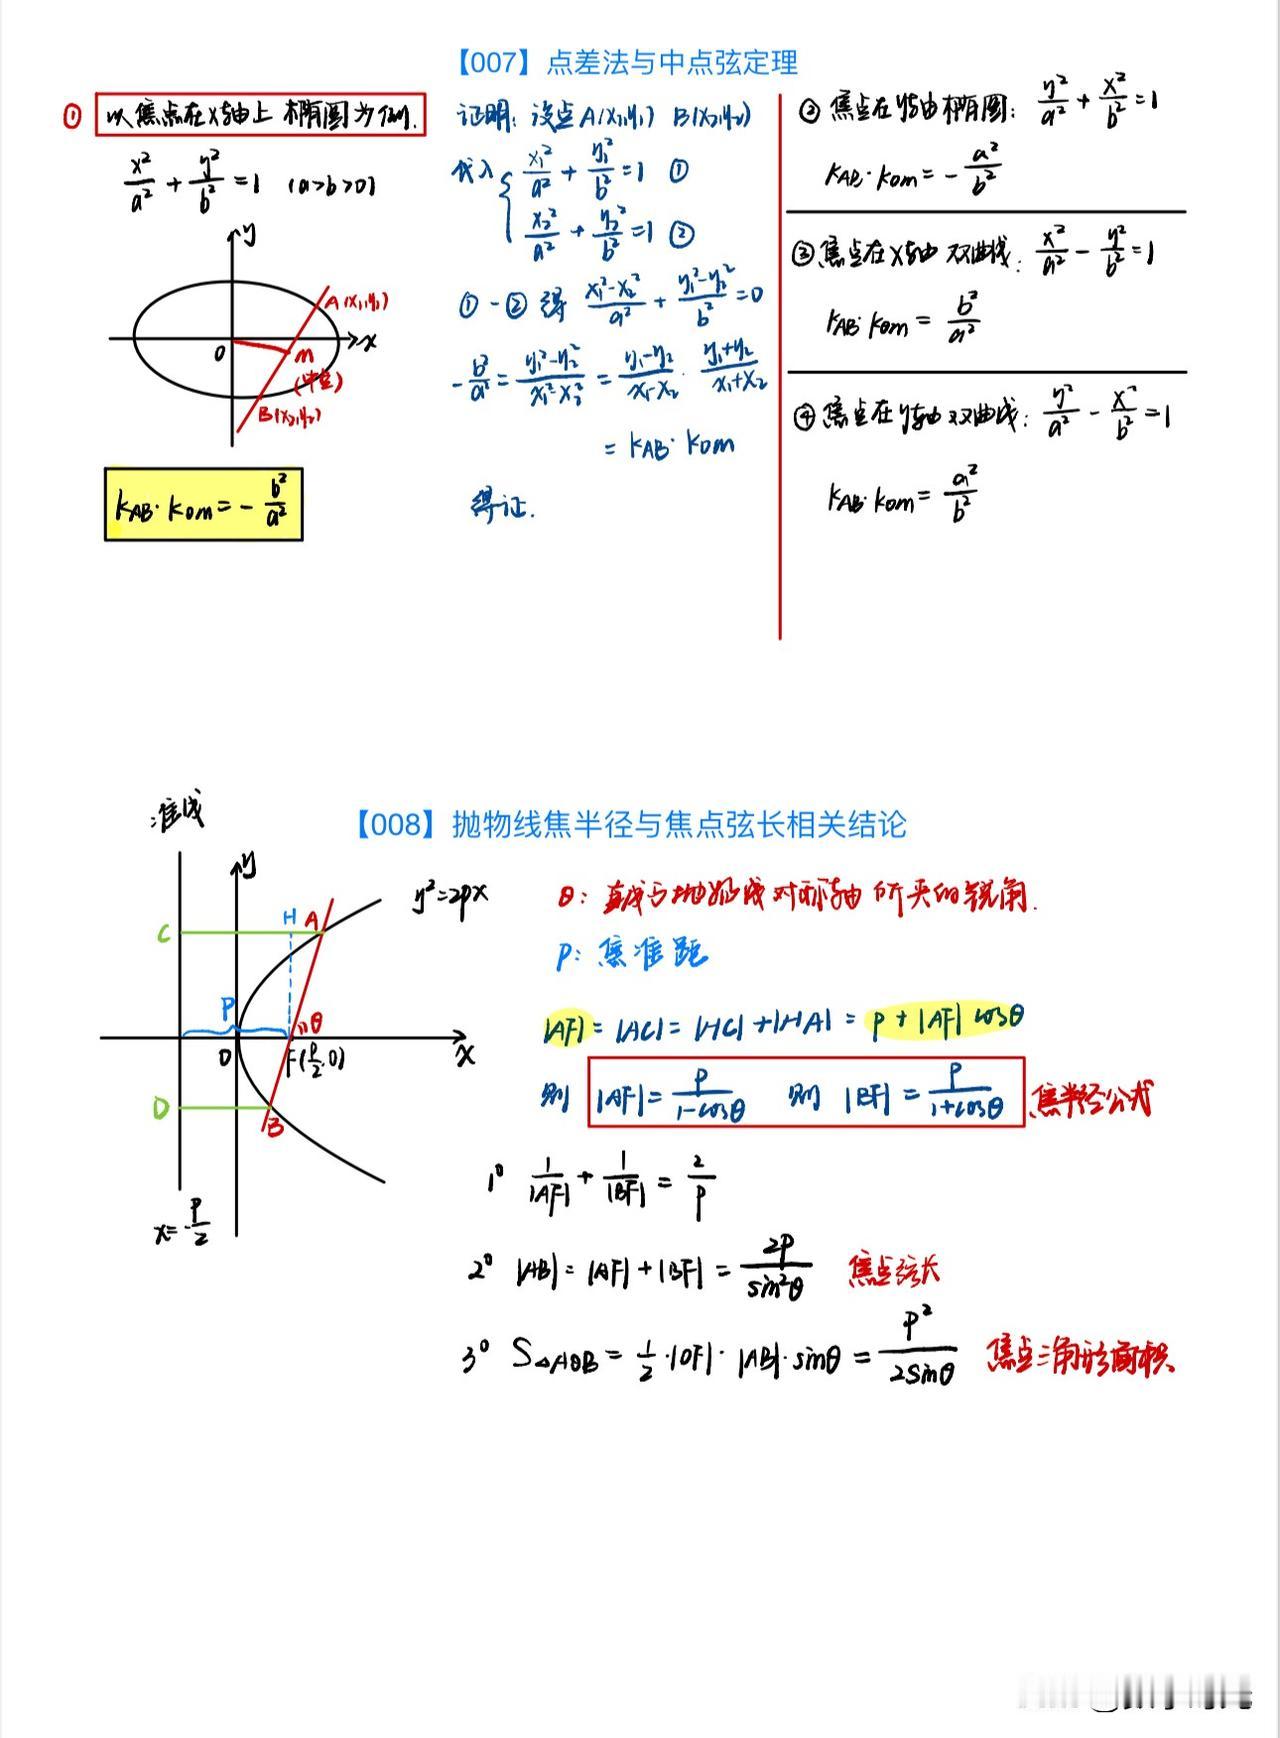 【007】点差法与中点弦定理
① 以焦点在x轴上椭圆为例.
x²/a² + y²/b² = 1 (a>b>0)
y
A(x₁,y₁)
O
x
M
(中点)
B(x₂,y₂)
k_AB·k_OM = - b²/a²
证明: 设点A(x₁,y₁) B(x₂,y₂)
代入 { x₁²/a² + y₁²/b² = 1 ①
x₂²/a² + y₂²/b² = 1 ②
① - ② 得 (x₁²-x₂²)/a² + (y₁²-y₂²)/b² = 0
- b²/a² = (y₁²-y₂²)/(x₁²-x₂²) = (y₁-y₂)/(x₁-x₂) · (y₁+y₂)/(x₁+x₂)
= k_AB · k_OM
得证.
② 焦点在y轴椭圆: y²/a² + x²/b² = 1
k_AB·k_OM = - a²/b²
③ 焦点在x轴双曲线: x²/a² - y²/b² = 1
k_AB·k_OM = b²/a²
④ 焦点在y轴双曲线: y²/a² - x²/b² = 1
k_AB·k_OM = a²/b²
【008】抛物线焦半径与焦点弦长相关结论
准线
y
y²=2px
C
H
A
P
θ
O
F(p/2,0)
x
D
B
x=-p/2
θ: 直线与抛物线对称轴所夹的锐角.
P: 焦准距
|AF| = |AC| = |HC| + |HA| = p + |AF| cosθ
则 |AF| = p/(1-cosθ) 则 |BF| = p/(1+cosθ) 焦半径公式
1° 1/|AF| + 1/|BF| = 2/p
2° |AB| = |AF| + |BF| = 2p/sin²θ 焦点弦长
3° S△AOB = 1/2·|OF|·|AB|·sinθ = p²/2sinθ 焦点三角形面积